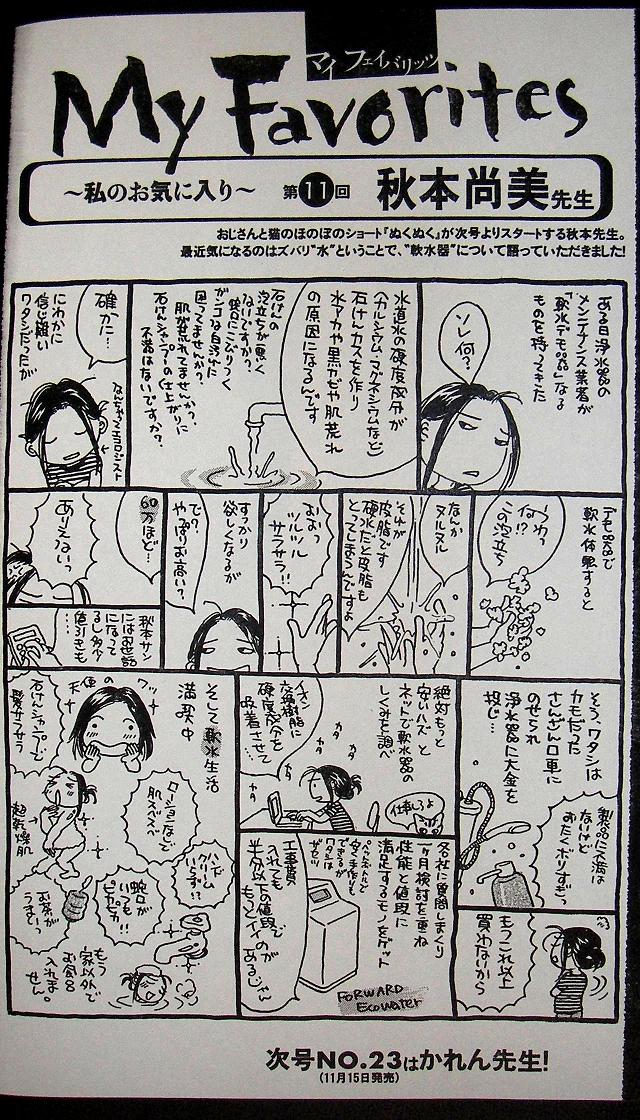 マイ フェイバリッツ
My Favorites
～私のお気に入り～ 第11回 秋本尚美先生
おじさんと猫のほのぼのショート『ぬくぬく』が次号よりスタートする秋本先生。
最近気になるのはズバリ“水”ということで、“軟水器”について語っていただきました！
ある日浄水器の
メンテナンス業者が
「軟水デモ器」なる
ものを持ってきた
ソレ何？
水道水の硬度成分が
（カルシウム・マグネシウムなど）
石けんカスを作り
水アカや黒カビや肌荒れ
の原因になるんです
石けんの
泡立ちが悪く
ないですか？
蛇口にこびりつく
ガンコな白汚れに
困ってませんか？
肌が荒れてませんか？
石けんシャンプーの仕上がりに
不満はないですか？
確かに…
なんちゃってエコロジスト
にわかに
信じ難い
ワタシだったが
デモ器で
軟水体験すると
うわっ
何!?
この泡立ち
なんか
ヌルヌル
それが
皮脂です
硬水だと皮脂も
とってしまうんですよ
おおっ
ツルツル
サラサラ!!
すっかり
欲しくなるが
で？
やっぱお高い？
60万ほど…
ありえないっ
秋本サン
にはお世話
になって
るし多少
値引きも
……
そう、ワタシは
カモだった
さんざん口車に
のせられ
浄水器に大金を
投じ…
製品に不満は
ないけど
おたくボリすぎっ
もうこれ以上
買わないから
絶対もっと
安いハズ と
ネットで軟水器の
しくみを調べ
イオン
交換樹脂に
硬度成分を
吸着させて…
カタ
カタ
カタ
カタ
仕事しろよ
各社に質問しまくり
一ヶ月検討を重ね
性能と値段に
満足するモノをゲット
工事費
入れても
半分以下の値段で
もっとイイのが
あるじゃん
FORWARD
Ecowater
そして軟水生活
満喫中
天使の
ワッ
石けんシャンプーで
髪サラサラ
ローションなしで
肌スベスベ
超乾燥肌
ハンド
クリーム
いらず!?
蛇口が
いつも
ピカピカ!!
お茶が
うまいっ
もう
家以外で
お風呂
入れま
せん。
次号NO.23はかれん先生！
（11月15日発売）